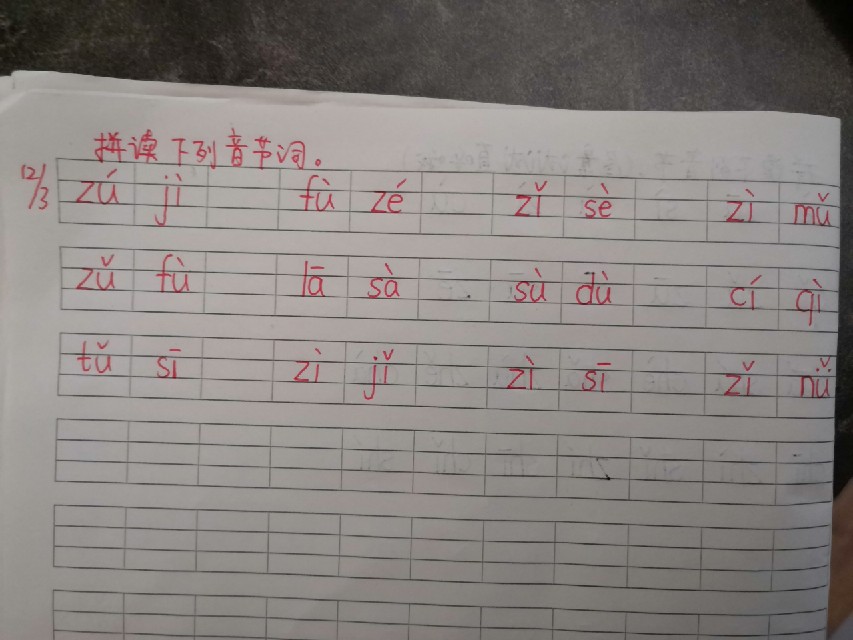 拼读下列音节词。
12/3
zú jì fù zé zǐ sè zì mǔ
zǔ fù lā sà sù dù cí qì
tǔ sī zì jǐ zì sī zǐ nǚ